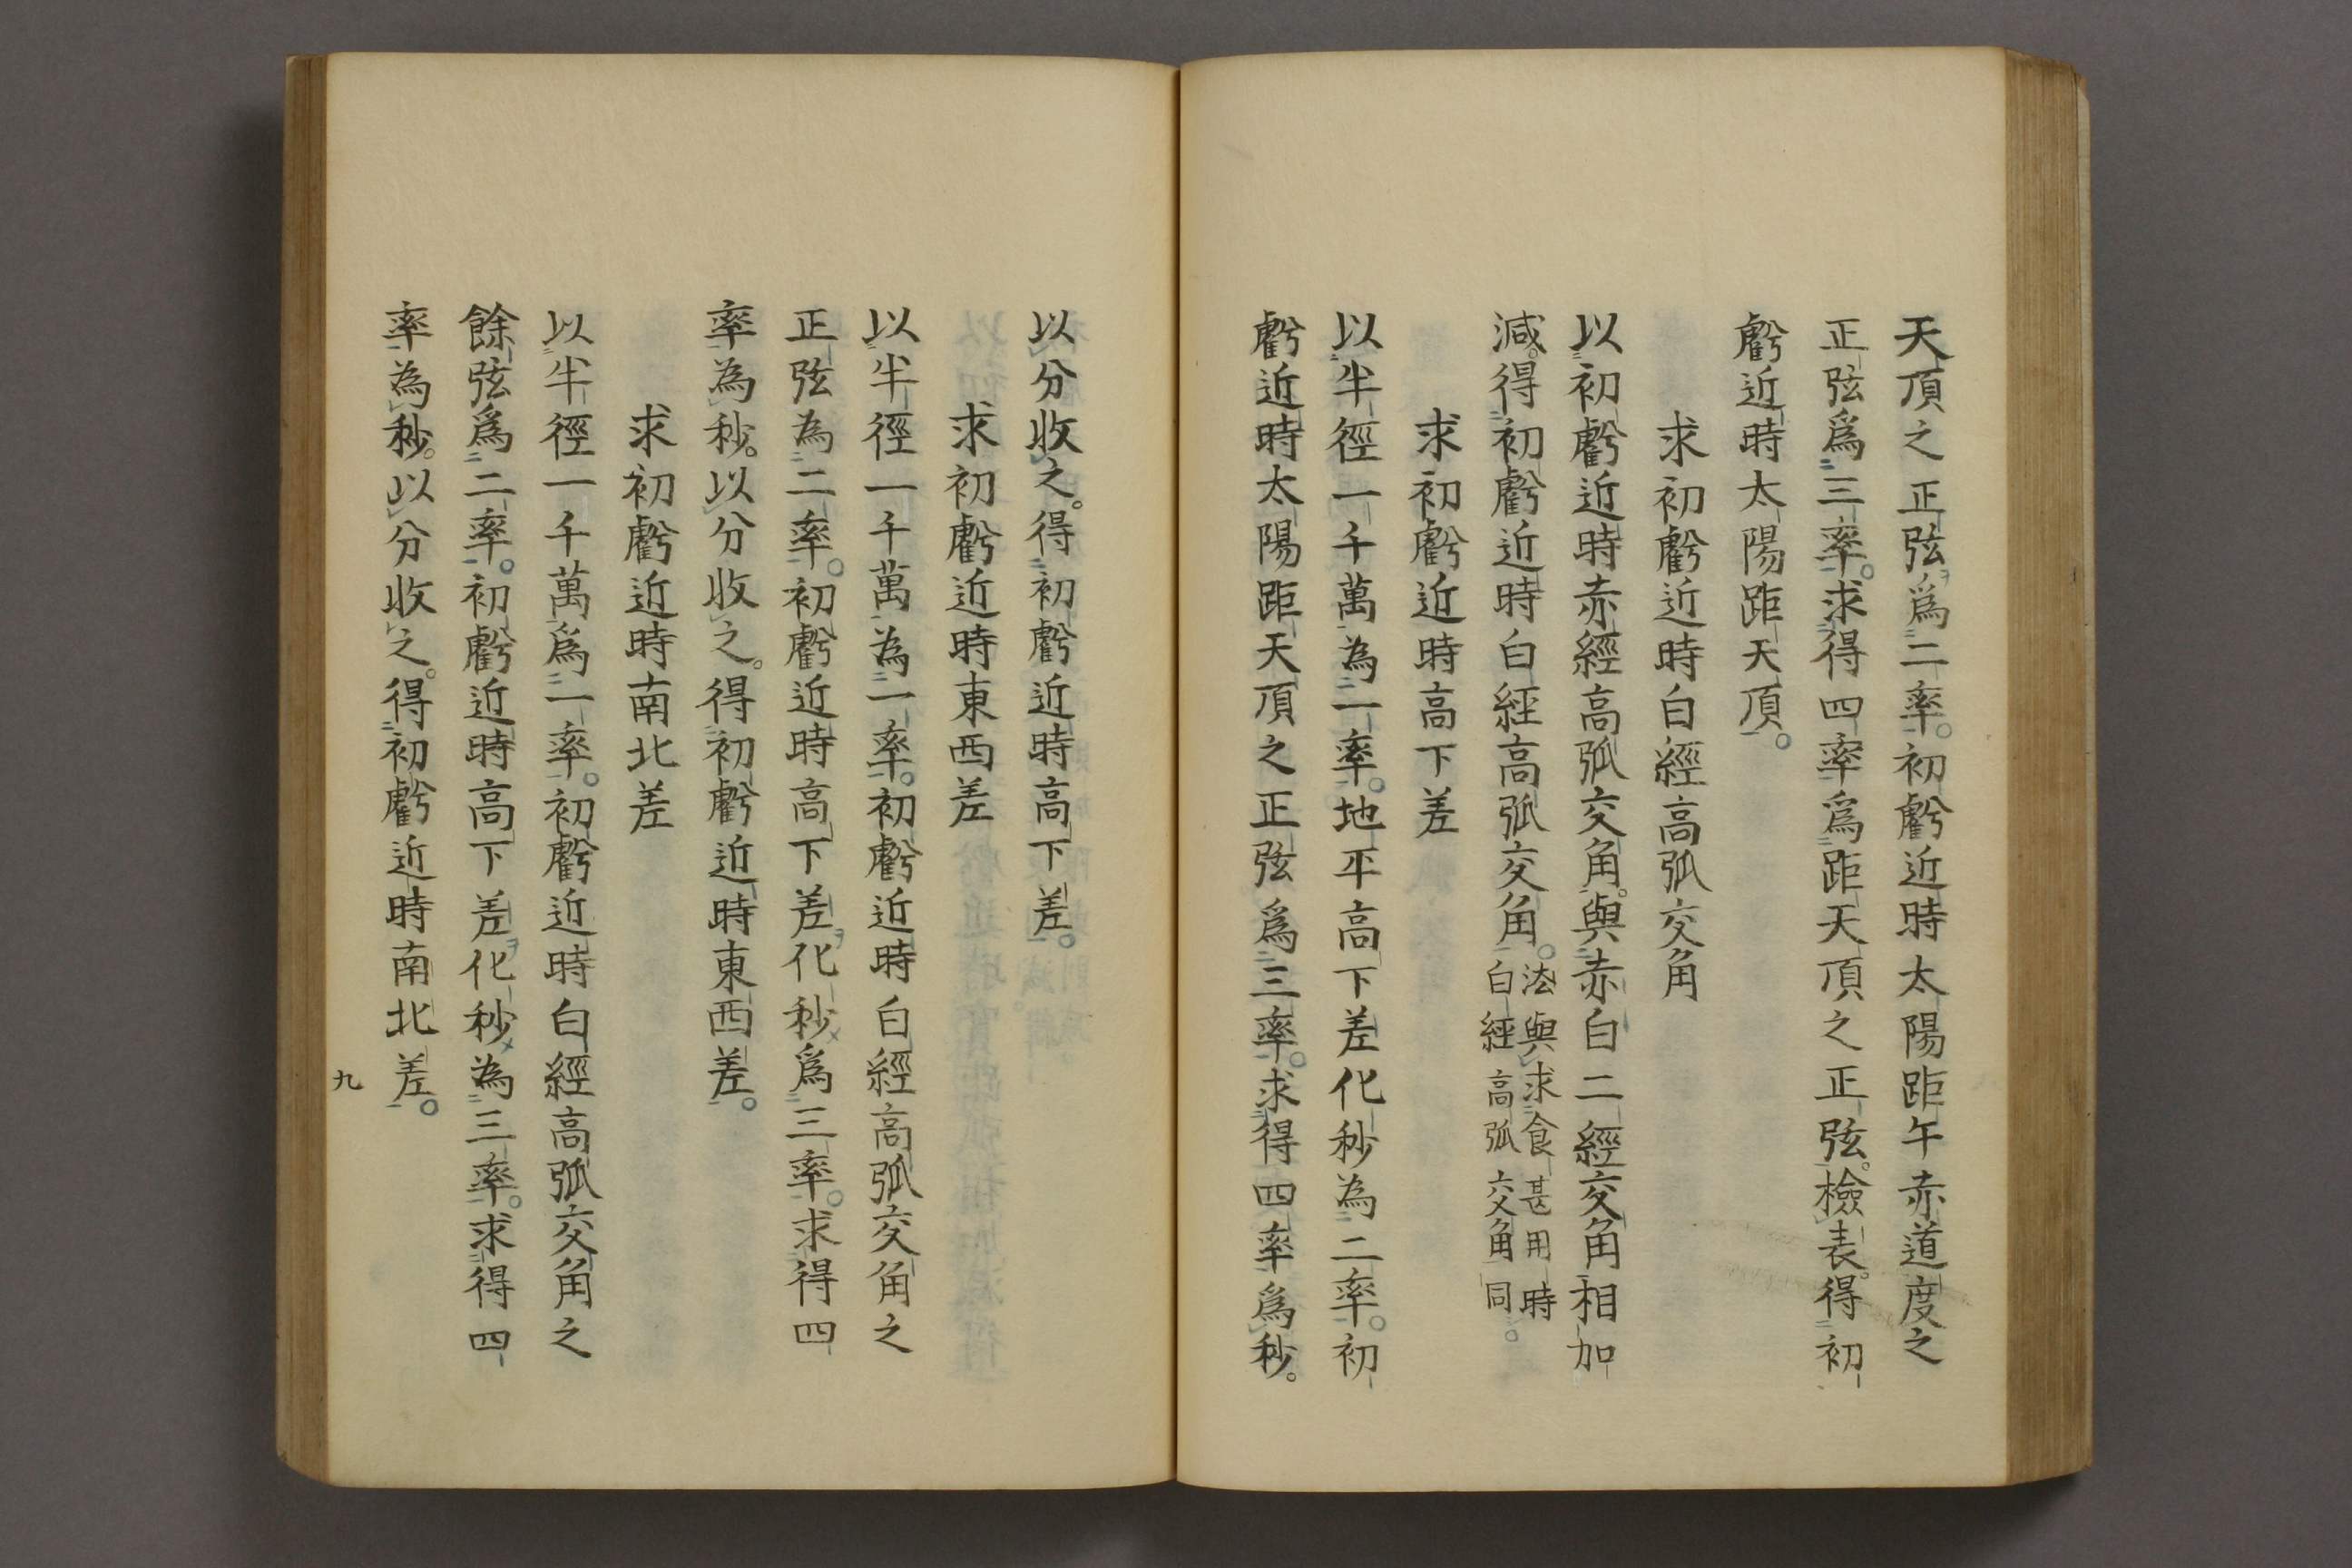 天頂之正弦爲二率。初虧近時太陽距午赤道度之
正弦爲三率。求得四率爲距天頂之正弦。檢表。得初
虧近時太陽距天頂。
求初虧近時白經高弧交角
以初虧近時赤經高弧交角。與赤白二經交角相加
減。得初虧近時白經高弧交角。法與求食甚用時
白經高弧交角同。
求初虧近時高下差
以半徑一千萬為一率。地平高下差化秒為二率。初
虧近時太陽距天頂之正弦爲三率。求得四率爲秒。
以分收之。得初虧近時高下差。
求初虧近時東西差
以半徑一千萬為一率。初虧近時白經高弧交角之
正弦為二率。初虧近時高下差ヲ化秒メ爲三率。求得四
率為秒。以分收之。得初虧近時東西差。
求初虧近時南北差
以半徑一千萬爲一率。初虧近時白經高弧交角之
餘弦爲二率。初虧近時高下差ヲ化秒メ為三率。求得四
率為秒。以分收之。得初虧近時南北差。
九